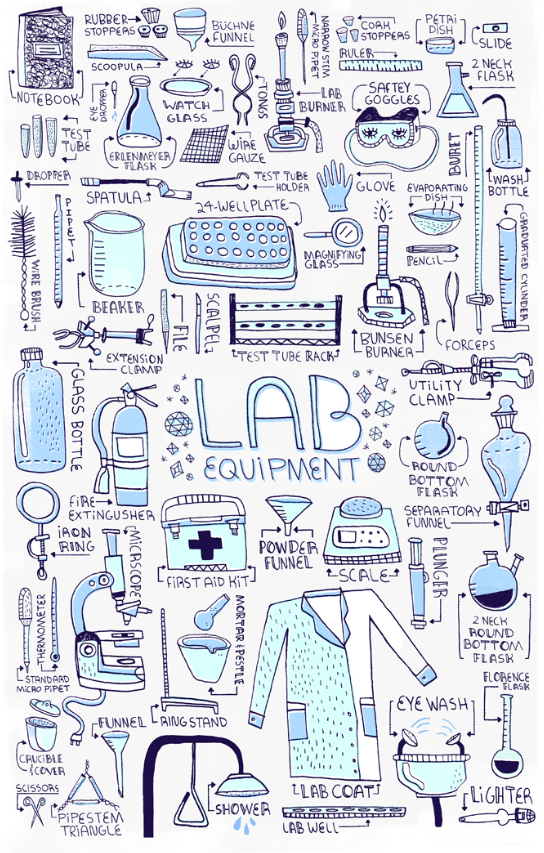 RUBBER
STOPPERS
BÜCHNE
FUNNEL
NARROW STEM
MICRO PIPET
CORK
STOPPERS
PETRI
DISH
SLIDE
SCOOPULA
RULER
2 NECK
FLASK
NOTEBOOK
EYE
DROPPER
WATCH
GLASS
TONGS
LAB
BURNER
SAFTEY
GOGGLES
TEST
TUBE
ERLENMEYER
FLASK
WIRE
GAUZE
BURET
WASH
BOTTLE
DROPPER
SPATULA
TEST TUBE
HOLDER
GLOVE
EVAPORATING
DISH
PIPET
24-WELLPLATE
MAGNIFYING
GLASS
PENCIL
GRADUATED CYLINDER
WIRE BRUSH
BEAKER
FILE
SCALPEL
TEST TUBE RACK
BUNSEN
BURNER
FORCEPS
EXTENSION
CLAMP
UTILITY
CLAMP
GLASS BOTTLE
LAB
EQUIPMENT
ROUND
BOTTOM
FLASK
FIRE
EXTINGUSHER
SEPARATORY
FUNNEL
IRON
RING
MICRSCOPE
FIRST AID KIT
POWDER
FUNNEL
SCALE
PLUNGER
THERMOMETER
MORTAR & PESTLE
2 NECK
ROUND
BOTTOM
FLASK
STANDARD
MICRO PIPET
RINGSTAND
FLORENCE
FLASK
EYE WASH
CRUCIBLE
& COVER
FUNNEL
SCISSORS
PIPESTEM
TRIANGLE
SHOWER
LAB COAT
LAB WELL
LIGHTER